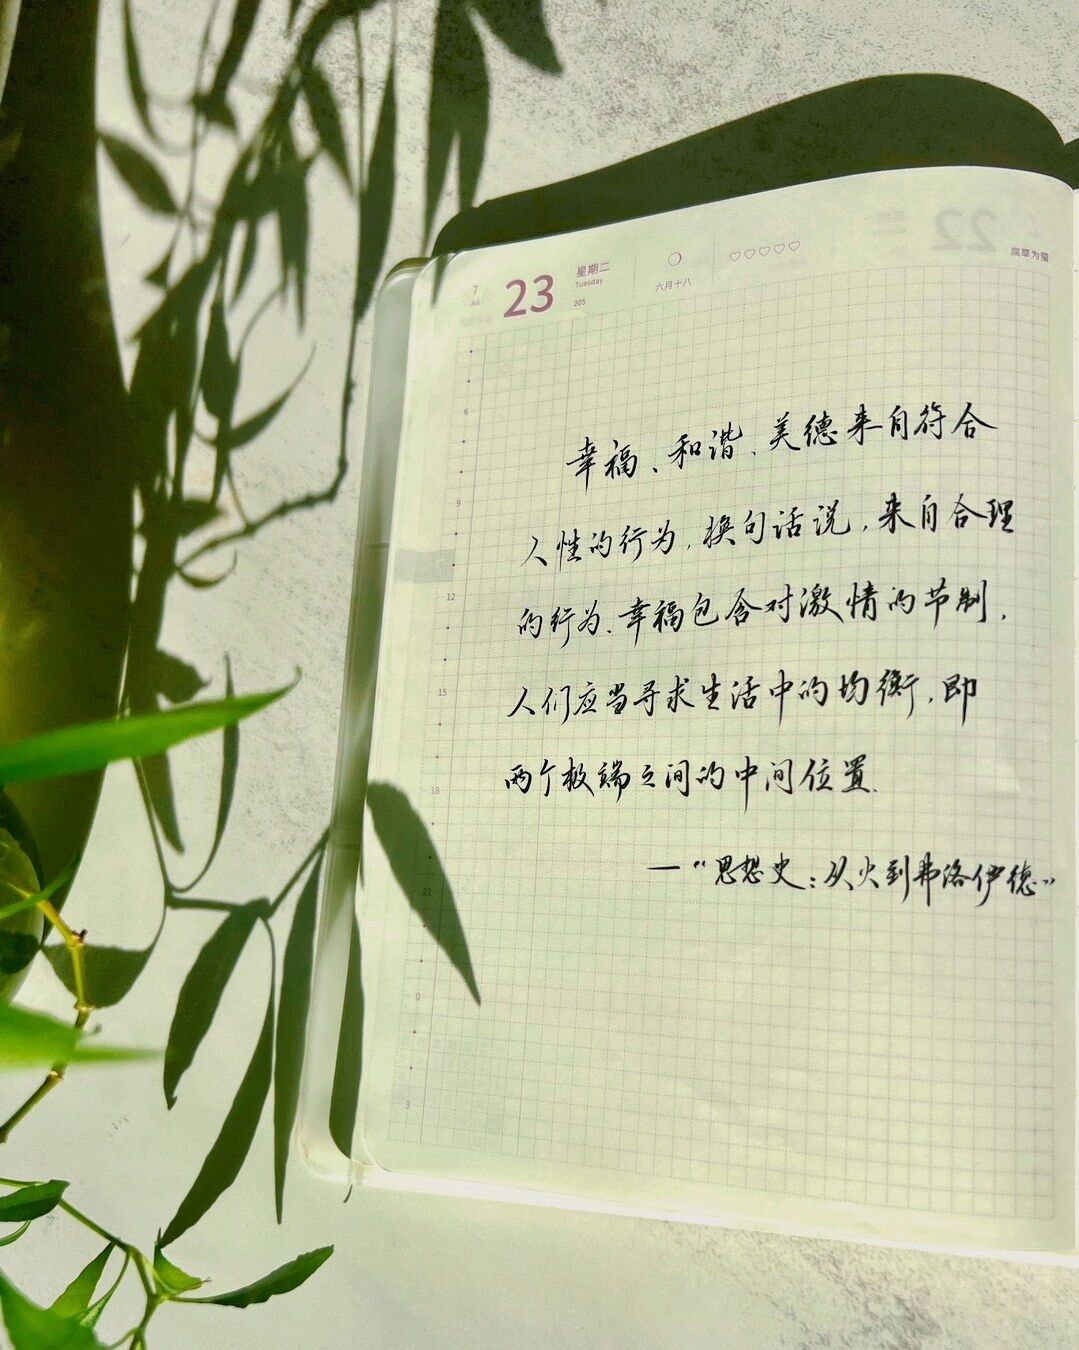 7
Jul
23
星期二
Tuesday
205
六月十八
♡♡♡♡♡
22
腐草为萤
6
9
12
15
18
21
0
3
幸福、和谐、美德来自符合
人性的行为,换句话说,来自合理
的行为.幸福包含对激情的节制,
人们应当寻求生活中的均衡,即
两个极端之间的中间位置.
—“思想史:从火到弗洛伊德”